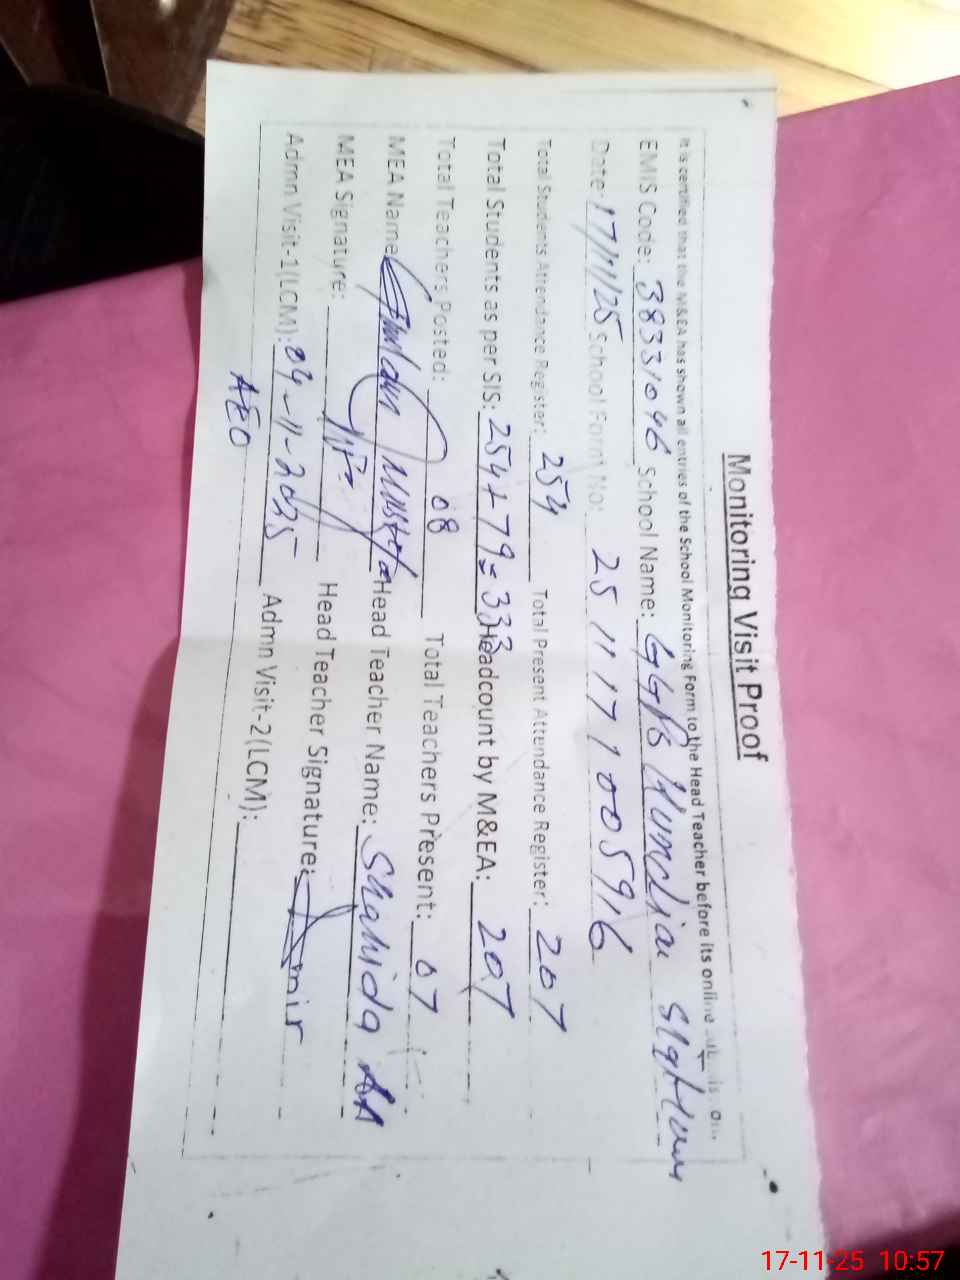 Monitoring Visit Proof
It is certified that the M&EA has shown all entries of the School Monitoring Form to the Head Teacher before its online
EMIS Code: 38331046 School Name: GGPS Kundian
Date: 17/11/25 School Form No: 25 11 17 1 005916
Total Students Attendance Register: 254 Total Present Attendance Register: 207
Total Students as per SIS: 254+79=333 Headcount by M&EA: 207
Total Teachers Posted: 08 Total Teachers Present: 07
MEA Name: Ghulam Mustafa Head Teacher Name: Shahida
MEA Signature: Head Teacher Signature:
Admn Visit-1(LCM): 04-11-2025 Admn Visit-2(LCM):
AEO
17-11-25 10:57